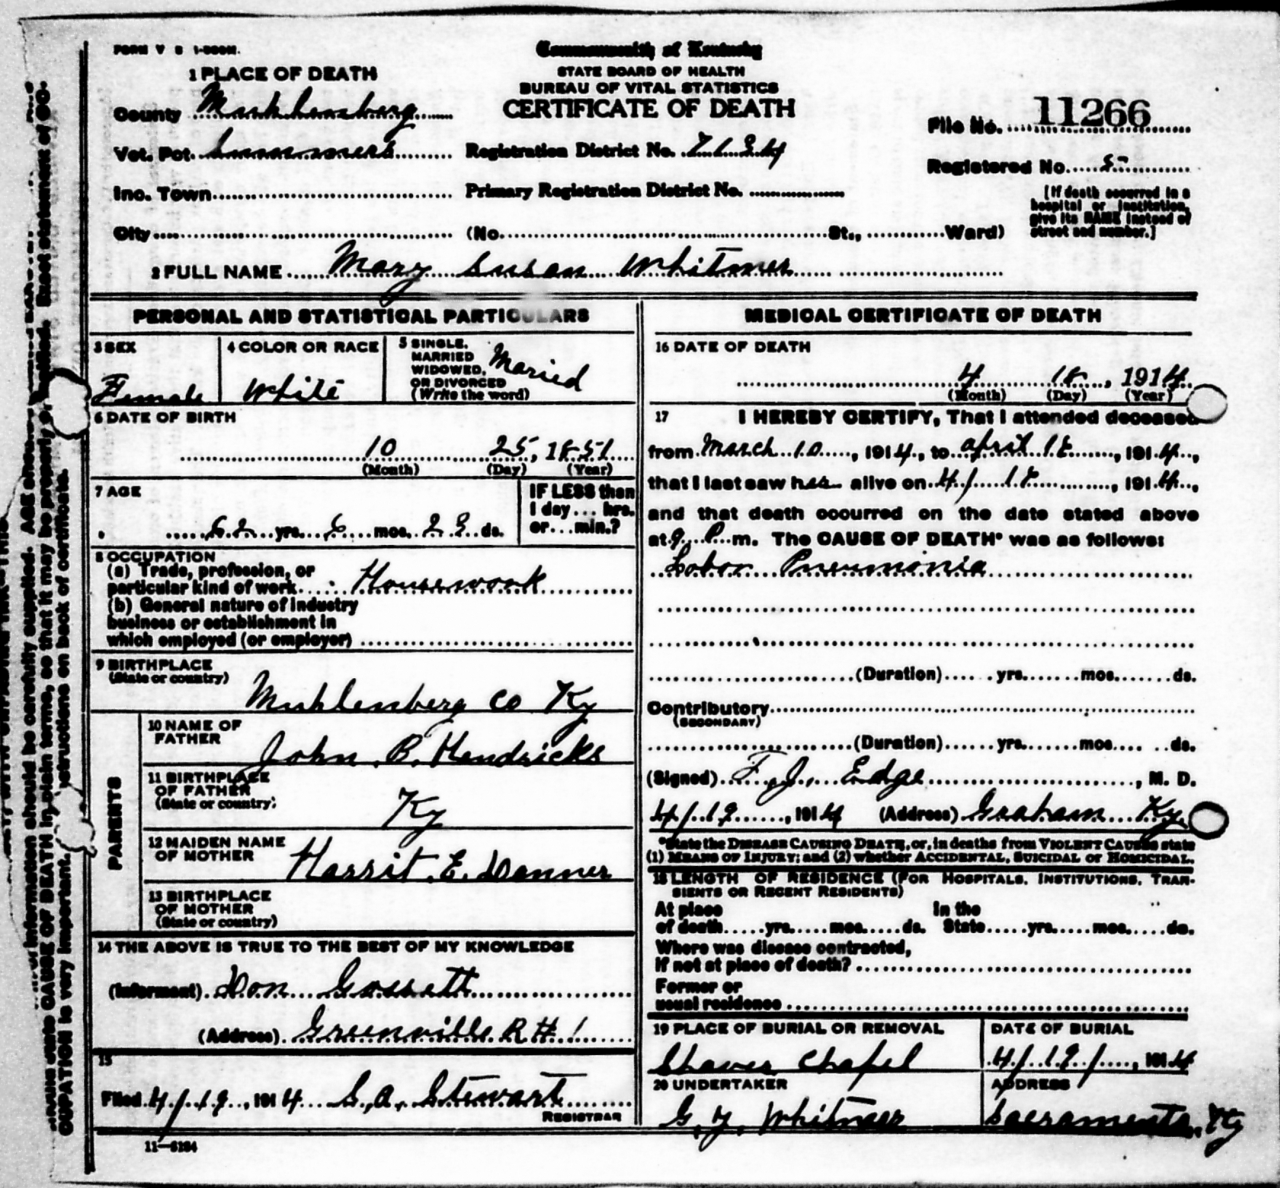 FORM V S 1-500M.
Commonwealth of Kentucky
STATE BOARD OF HEALTH
BUREAU OF VITAL STATISTICS
CERTIFICATE OF DEATH
1 PLACE OF DEATH
County Muhlensberg
Vot. Pct. Summers
Registration District No. 7134
File No. 11266
Registered No. 5
Inc. Town
Primary Registration District No.
[If death occurred in a
hospital or institution,
give its NAME instead of
street and number.]
City (No. St., Ward)
2 FULL NAME Mary Susan Whitmer
PERSONAL AND STATISTICAL PARTICULARS
3 SEX
Female
4 COLOR OR RACE
White
5 SINGLE,
MARRIED
WIDOWED,
OR DIVORCED
(Write the word)
Maried
6 DATE OF BIRTH
10 25, 1851
(Month) (Day) (Year)
7 AGE
62 yrs. 6 mos. 23 ds.
IF LESS than
1 day... hrs.
or... min.?
8 OCCUPATION
(a) Trade, profession, or
particular kind of work Housework
(b) General nature of industry
business or establishment in
which employed (or employer)
9 BIRTHPLACE
(State or country)
Muhlenberg Co Ky
PARENTS
10 NAME OF
FATHER
John B. Hendricks
11 BIRTHPLACE
OF FATHER
(State or country)
Ky
12 MAIDEN NAME
OF MOTHER
Harrit E. Danner
13 BIRTHPLACE
OF MOTHER
(State or country)
14 THE ABOVE IS TRUE TO THE BEST OF MY KNOWLEDGE
(Informant) Don Gossett
(Address) Greenville R# 1
15
Filed 4/19, 1914 S. A. Stewart
REGISTRAR
11-5184
MEDICAL CERTIFICATE OF DEATH
16 DATE OF DEATH
4 18, 1914
(Month) (Day) (Year)
17 I HEREBY CERTIFY, That I attended deceased
from March 10, 1914, to April 18, 1914,
that I last saw her alive on 4/ 18, 1914,
and that death occurred on the date stated above
at 9 P m. The CAUSE OF DEATH* was as follows:
Lobar Pneumonia
(Duration) yrs. mos. ds.
Contributory
(SECONDARY)
(Duration) yrs. mos. ds.
(Signed) F. J. Edge, M. D.
4/19, 1914 (Address) Graham Ky.
*State the DISEASE CAUSING DEATH, or, in deaths from VIOLENT CAUSES state
(1) MEANS OF INJURY; and (2) whether ACCIDENTAL, SUICIDAL or HOMICIDAL.
18 LENGTH OF RESIDENCE (FOR HOSPITALS, INSTITUTIONS, TRAN-
SIENTS OR RECENT RESIDENTS)
At place In the
of death yrs. mos. ds. State yrs. mos. ds.
Where was disease contracted,
if not at place of death?
Former or
usual residence
19 PLACE OF BURIAL OR REMOVAL
Shaver Chapel
DATE OF BURIAL
4/19/, 1914
20 UNDERTAKER
G. Y. Whitmer
ADDRESS
Sacramento, Ky
information should be carefully supplied. AGE
CAUSE OF DEATH in plain terms, so that it may be properly classified. Exact statement of OC-
CUPATION is very important. instructions on back of certificate.